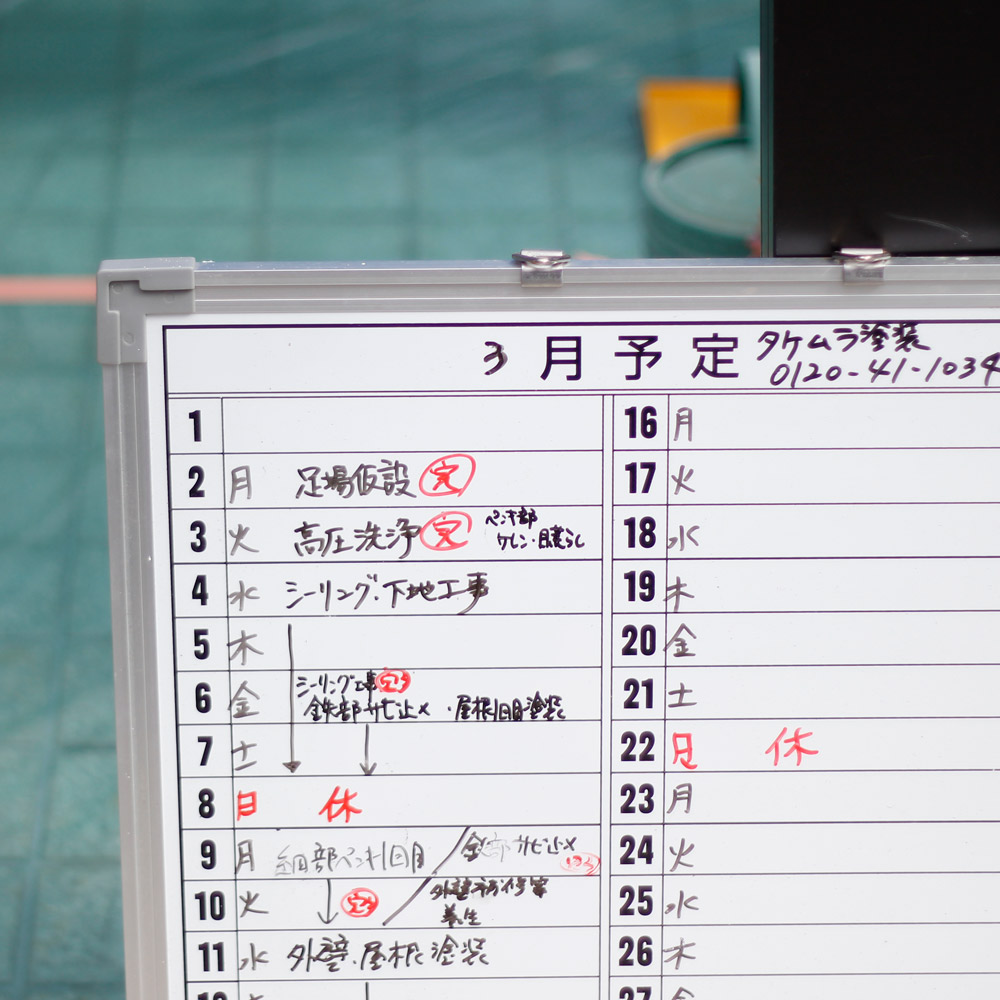 3月予定 タケムラ塗装
0120-41-1034
1
2 月 足場仮設 完
3 火 高圧洗浄 完 ペンキ部
ケレン・目荒らし
4 水 シーリング・下地工事
5 木
6 金 シーリング工事 完了
鉄部サビ止メ ・屋根1回目塗装
7 土
8 日 休
9 月 細部ペンキ1回目 鉄部サビ止メ
10 火 完了 外壁
養生
11 水 外壁・屋根塗装
16 月
17 火
18 水
19 木
20 金
21 土
22 日 休
23 月
24 火
25 水
26 木
27 金